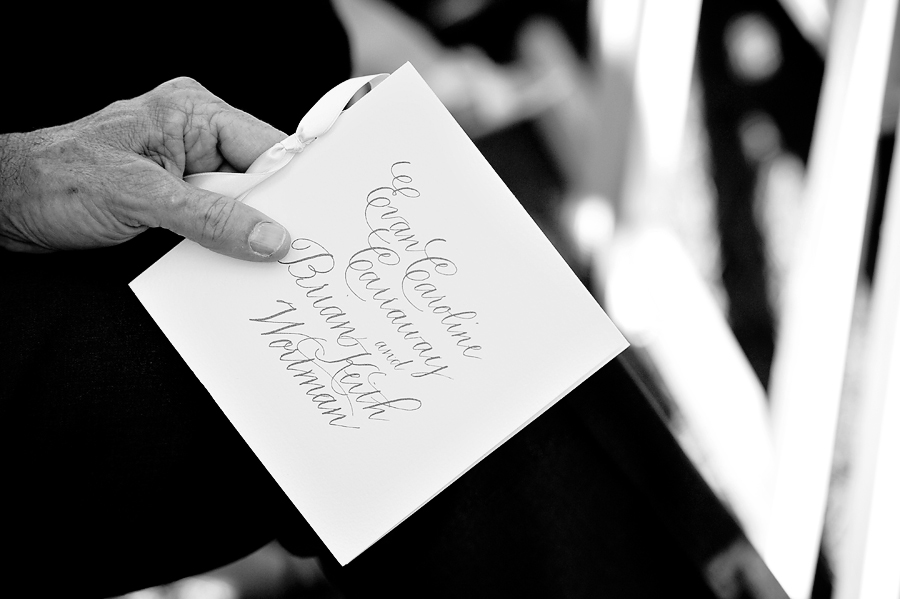 Evan Caroline
Carraway
and
Brian Keith
Woltman